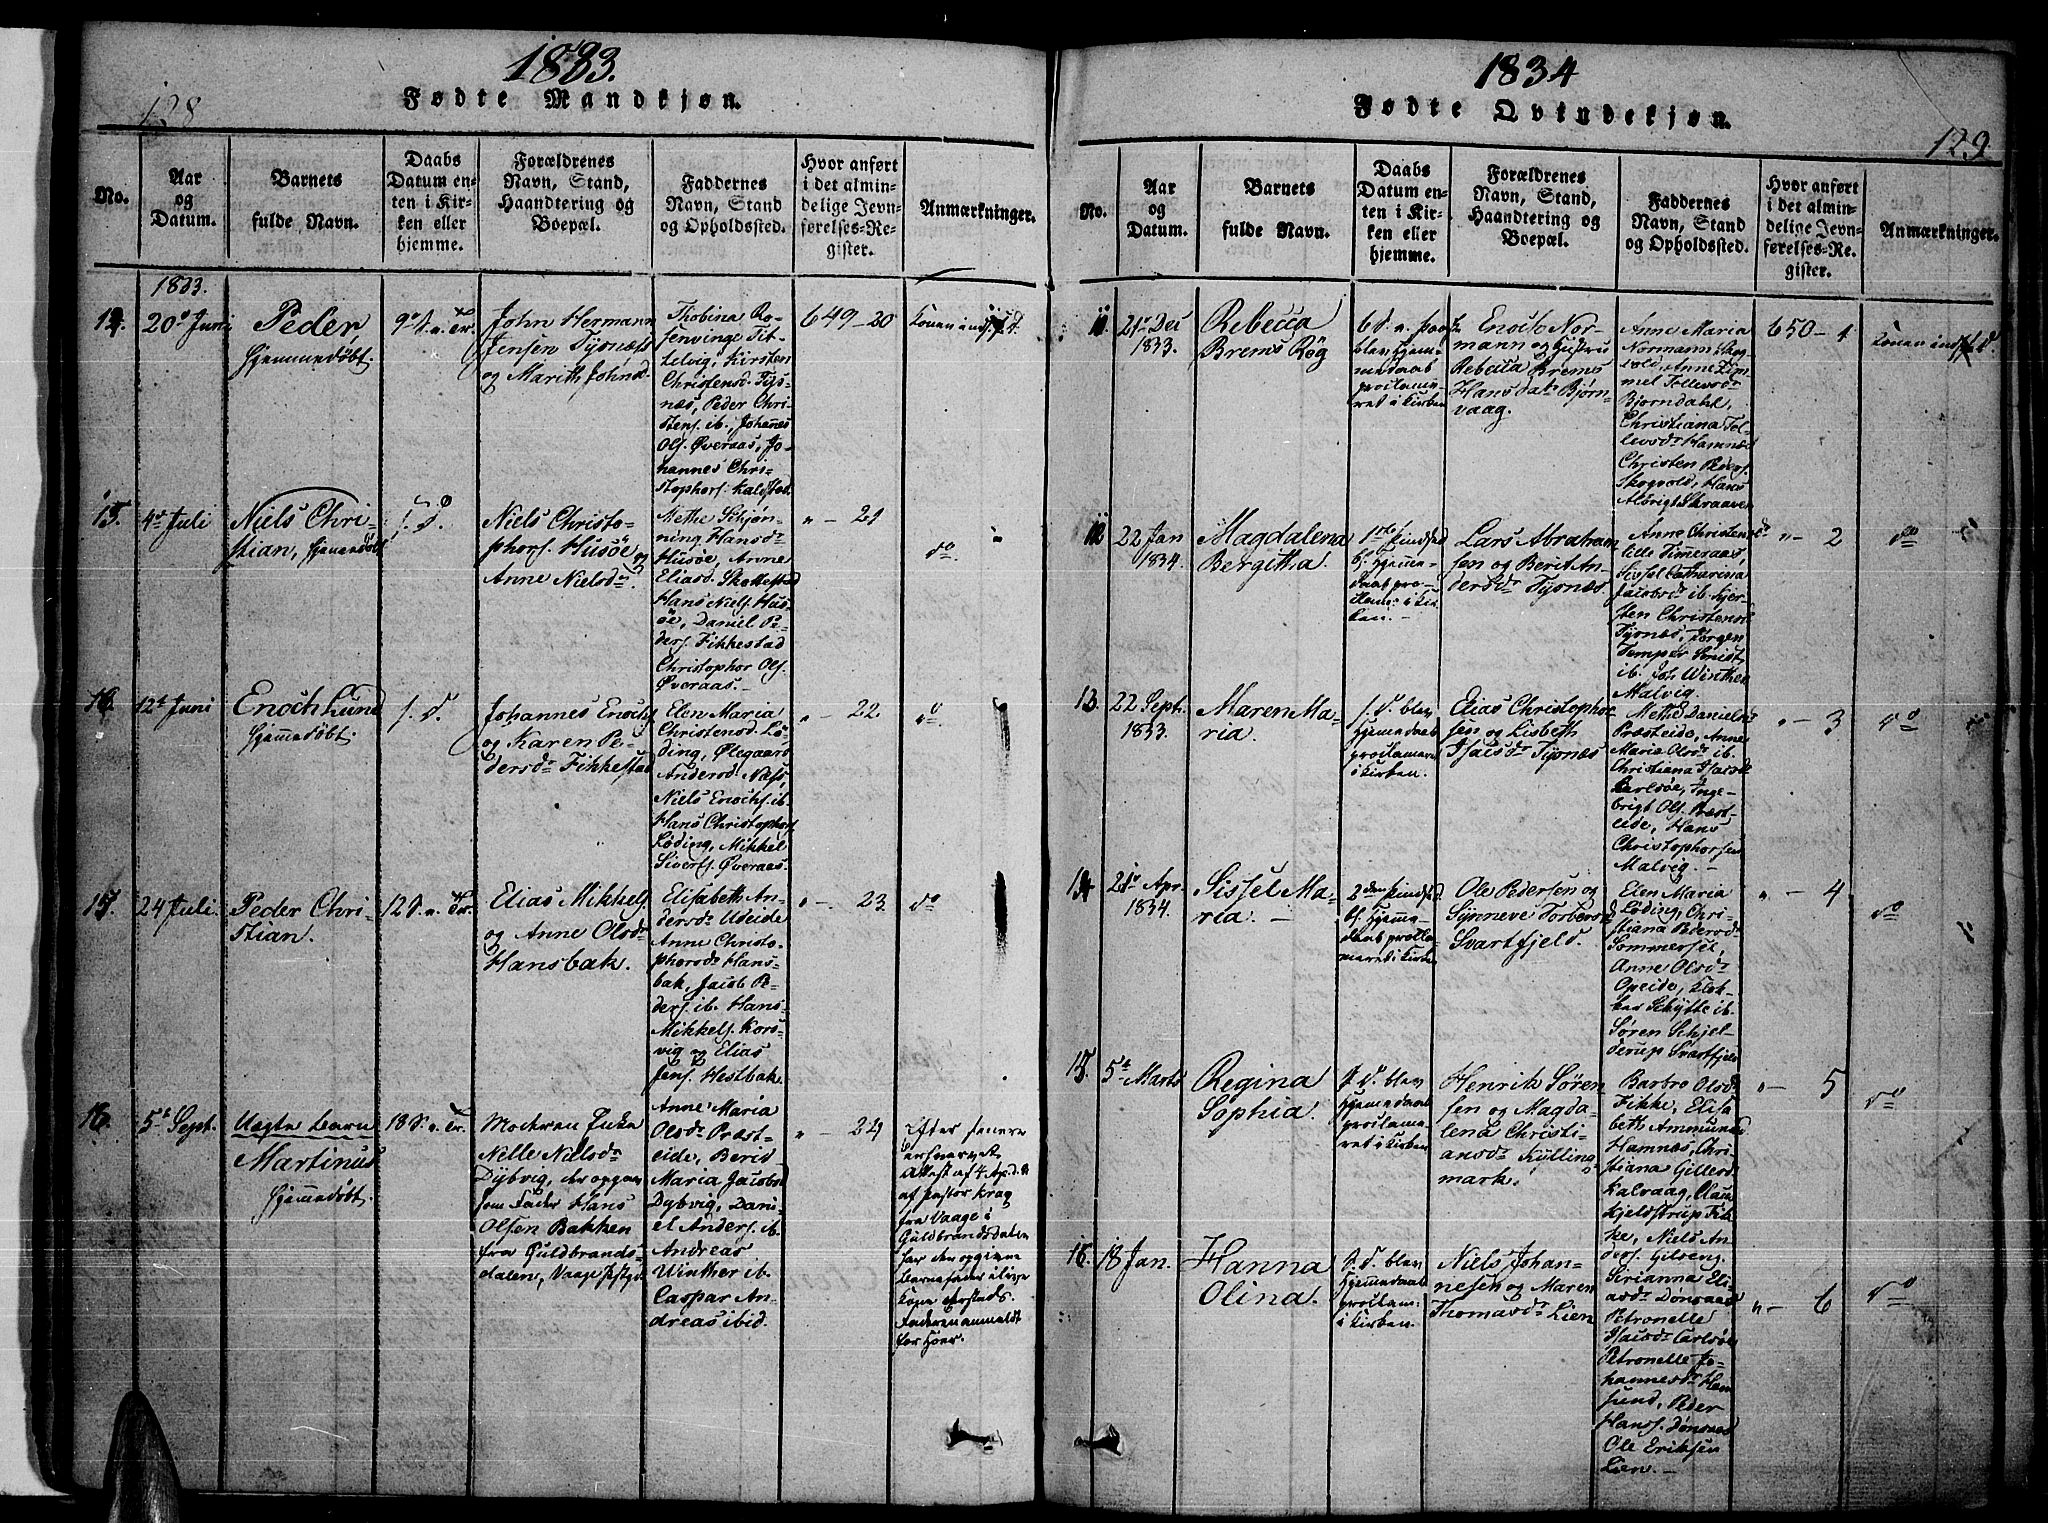 1833.
Fødte Mandkjøn.
128
No.
Aar
og
Datum.
Barnets
fulde Navn.
Daabs
Datum en-
ten i Kir-
ken eller
hjemme.
Forældrenes
Navn, Stand,
Haandtering og
Boepæl.
Faddernes
Navn, Stand
og Opholdssted.
Hvor anført
i det almin-
delige Jevn-
førelses-Re-
gister.
Anmærkninger.
1833.
14.
20de Juni
Peder
Hjemmedøbt.
John Hermann
Jensen Tysnæs
og Marith Johnsd.
Thobina Ro-
senvinge Tit-
telvig, Kirsten
Christensd. Tys-
næs, Peder Chri-
stens. ib., Johanes
Ols. Øveraas, Jo-
hannes Chri-
stophers. Kaldstad.
649-20
15.
4de Juli
Niels Chri-
stian, Hjemmedøbt
Niels Christo-
phers. Husöe og
Anne Nielsdr.
Methe Schjøn-
ning Hansd.
Husöe, Anne
Eliasd.
Hans Niels. Hus-
öe, Daniel Pe-
ders. Fikkestad
Christophor Ols.
Øveraas.-
" - 21
do
16.
12te Juni
Enoch Lund
Hjemmedøbt.
Johannes Enochs.
og Karen Pe-
dersdr Fikkestad
Elen Maria
Christensd. Lö-
ding, Ølegaard
Andersd. Næss,
Niels Enochs. ib.
Hans Christophers.
Løding, Mikkel
Siverts. Øveraas.
" - 22
do.
24 Juli.
Peder Chri-
stian.
Elias Mikkels.
og Anne Olsdr
Hansbak.
Elisabeth An-
dersdr Udeide
Anne Christo-
phersdr Hans-
bak, Jacob Pe-
ders. ib. Hans
Mikkels. Kors-
vig og Elias
Jens. Hestbak.
" - 23
do
16.
5te Sept.
Uægte Barn
Martinus
Hjemmedøbt.
Moderen Enke
Nelle Nielsdr
Dybvig, der opgav
som Fader Hans
Olsen Bakken
fra Guldbrands-
dalen, Vaage
Anne Maria
Olsdr Præst-
eide, Berid
Maria Jacobsd
Dybvig, Dani-
el Anders. ib.
Andreas
Winther ib.
Caspar An-
dreas ibid.
" - 24
Efter senere
Attest af 4 Apr.
af Pastor Krag
fra Vaage i
Guldbrandsdalen
har den opgivne
Barnefader
Faderen anmeldt
for Hoer.
1834
Fødte Qvindekjøn.
129
No.
Aar
og
Datum.
Barnets
fulde Navn.
Daabs
Datum en-
ten i Kir-
ken eller
hjemme.
Forældrenes
Navn, Stand,
Haandtering og
Boepæl.
Faddernes
Navn, Stand
og Opholdssted.
Hvor anført
i det almin-
delige Jevn-
førelses-Re-
gister.
Anmærkninger.
11
21de Dec
1833.
Rebecca
Brems Røg
blev Hjem-
medaab
proclame-
ret i Kirken
Enoch Nor-
mann og Hustru
Rebecca Brems
Hansdatr Bjørn-
vaag.
Anne Maria
Normann, Skog-
vold, Anne
Tollevsdr
Bjørndahl,
Christiana Tol-
levsdr Hamnæs
Christen Peders.
Skogvold, Hans
Albrigt Skraaven
650 - 1
12
22 Jan
1834.
Magdalena
Bergitha.
Lars Abraham-
sen og Berit An-
dersdr Tysnæs.
Anne Christensdr
Sissel Catharina
Jacobsdr ib. Kjer-
sten Christensd
Tysnæs, Jørgen
ib. Joh. Winther
Malvig.
" - 2
do
13.
22 Sept.
1833.
Maren Ma-
ria.
S. d. blev
Hjemmedaab
proclameret
i Kirken.
Elias Christopher-
sen og Lisbeth
Isaksdr Tysnæs
Methe Daniels
Præsteide, Anne
Maria Olsdr ib.
Christiana Isacsdr
Carlsöe, Inge-
brigt Ols. Præst-
eide, Hans
Christophersen
Malvig.
" - 3
do
14
21de Apr.
1834.
Sissel Ma-
ria. -
Ole Pedersen og
Synneve Torbersd
Svartfjeld.
Elen Maria
Løding, Chri-
stiana Pedersdr
Sommerset,
Anne Olsdr
Opeide, Klok-
ker Schytte ib.
Søren Schjel-
derup Svartfjeld
" - 4
do
15.
5te Marts
Regina
Sophia.
S. d. blev
Hjemmedaab
proclame-
ret i Kirken
Henrik Søren-
sen og Magda-
lena Christi-
ansdr Kylling-
mark.
Barbro Olsdr
Fikke, Elisa-
beth Ammunds
Hamnæs, Chri-
stiana Gillesd
Kalvaag, Claus
Kjeldstrup Fik-
ke, Niels An-
ders. Gilseng.
" - 5
do
16.
18 Jan.
Hanna
Olina.
S. d. blev
Hjemmedaab
proclam:
i Kirken.
Niels Johan-
nesen og Maren
Thomasdr Lien
Sirianna Eli-
asdr Dønsaas
Petronelle
Isacsdr Carlsöe
Petronelle Jo-
hannesdr Ham
sund, Peder
Hans. Dønsaas
Ole Eriksen
Lien. -
" - 6
do